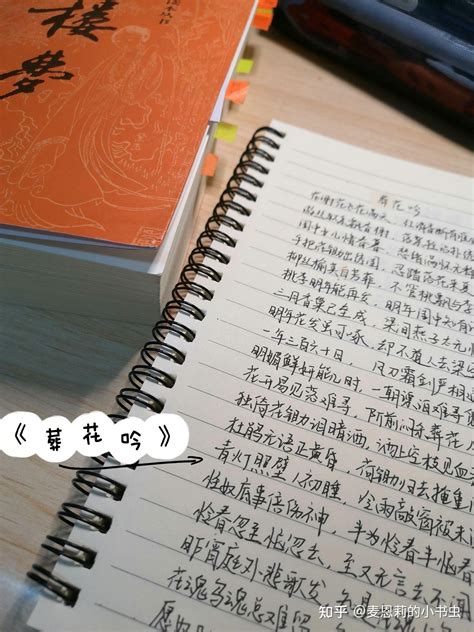 楼
梦
葬花吟
花谢花飞花满天，红消香断有谁
游丝软系飘春榭，落絮轻沾扑绣
闺中女儿惜春暮，愁绪满怀无
手把花锄出绣闺，忍踏落花来复
柳丝榆荚自芳菲，不管桃飘与李
桃李明年能再发，明年闺中知
三月香巢已垒成，梁间燕子太无
明年花发虽可啄，却不道人去梁空
一年三百六十日，风刀霜剑严相
明媚鲜妍能几时，一朝漂泊难寻
花开易见落难寻，阶前闷杀葬花
独倚花锄泪暗洒，洒上空枝见血
杜鹃无语正黄昏，荷锄归去掩重
青灯照壁人初睡，冷雨敲窗被未
怪奴底事倍伤神，半为怜春半恼
怜春忽至恼忽去，至又无言去不闻
昨宵庭外悲歌发，知是
花魂鸟魂总难留
愿奴
《葬花吟》
知乎 @麦恩莉的小书虫